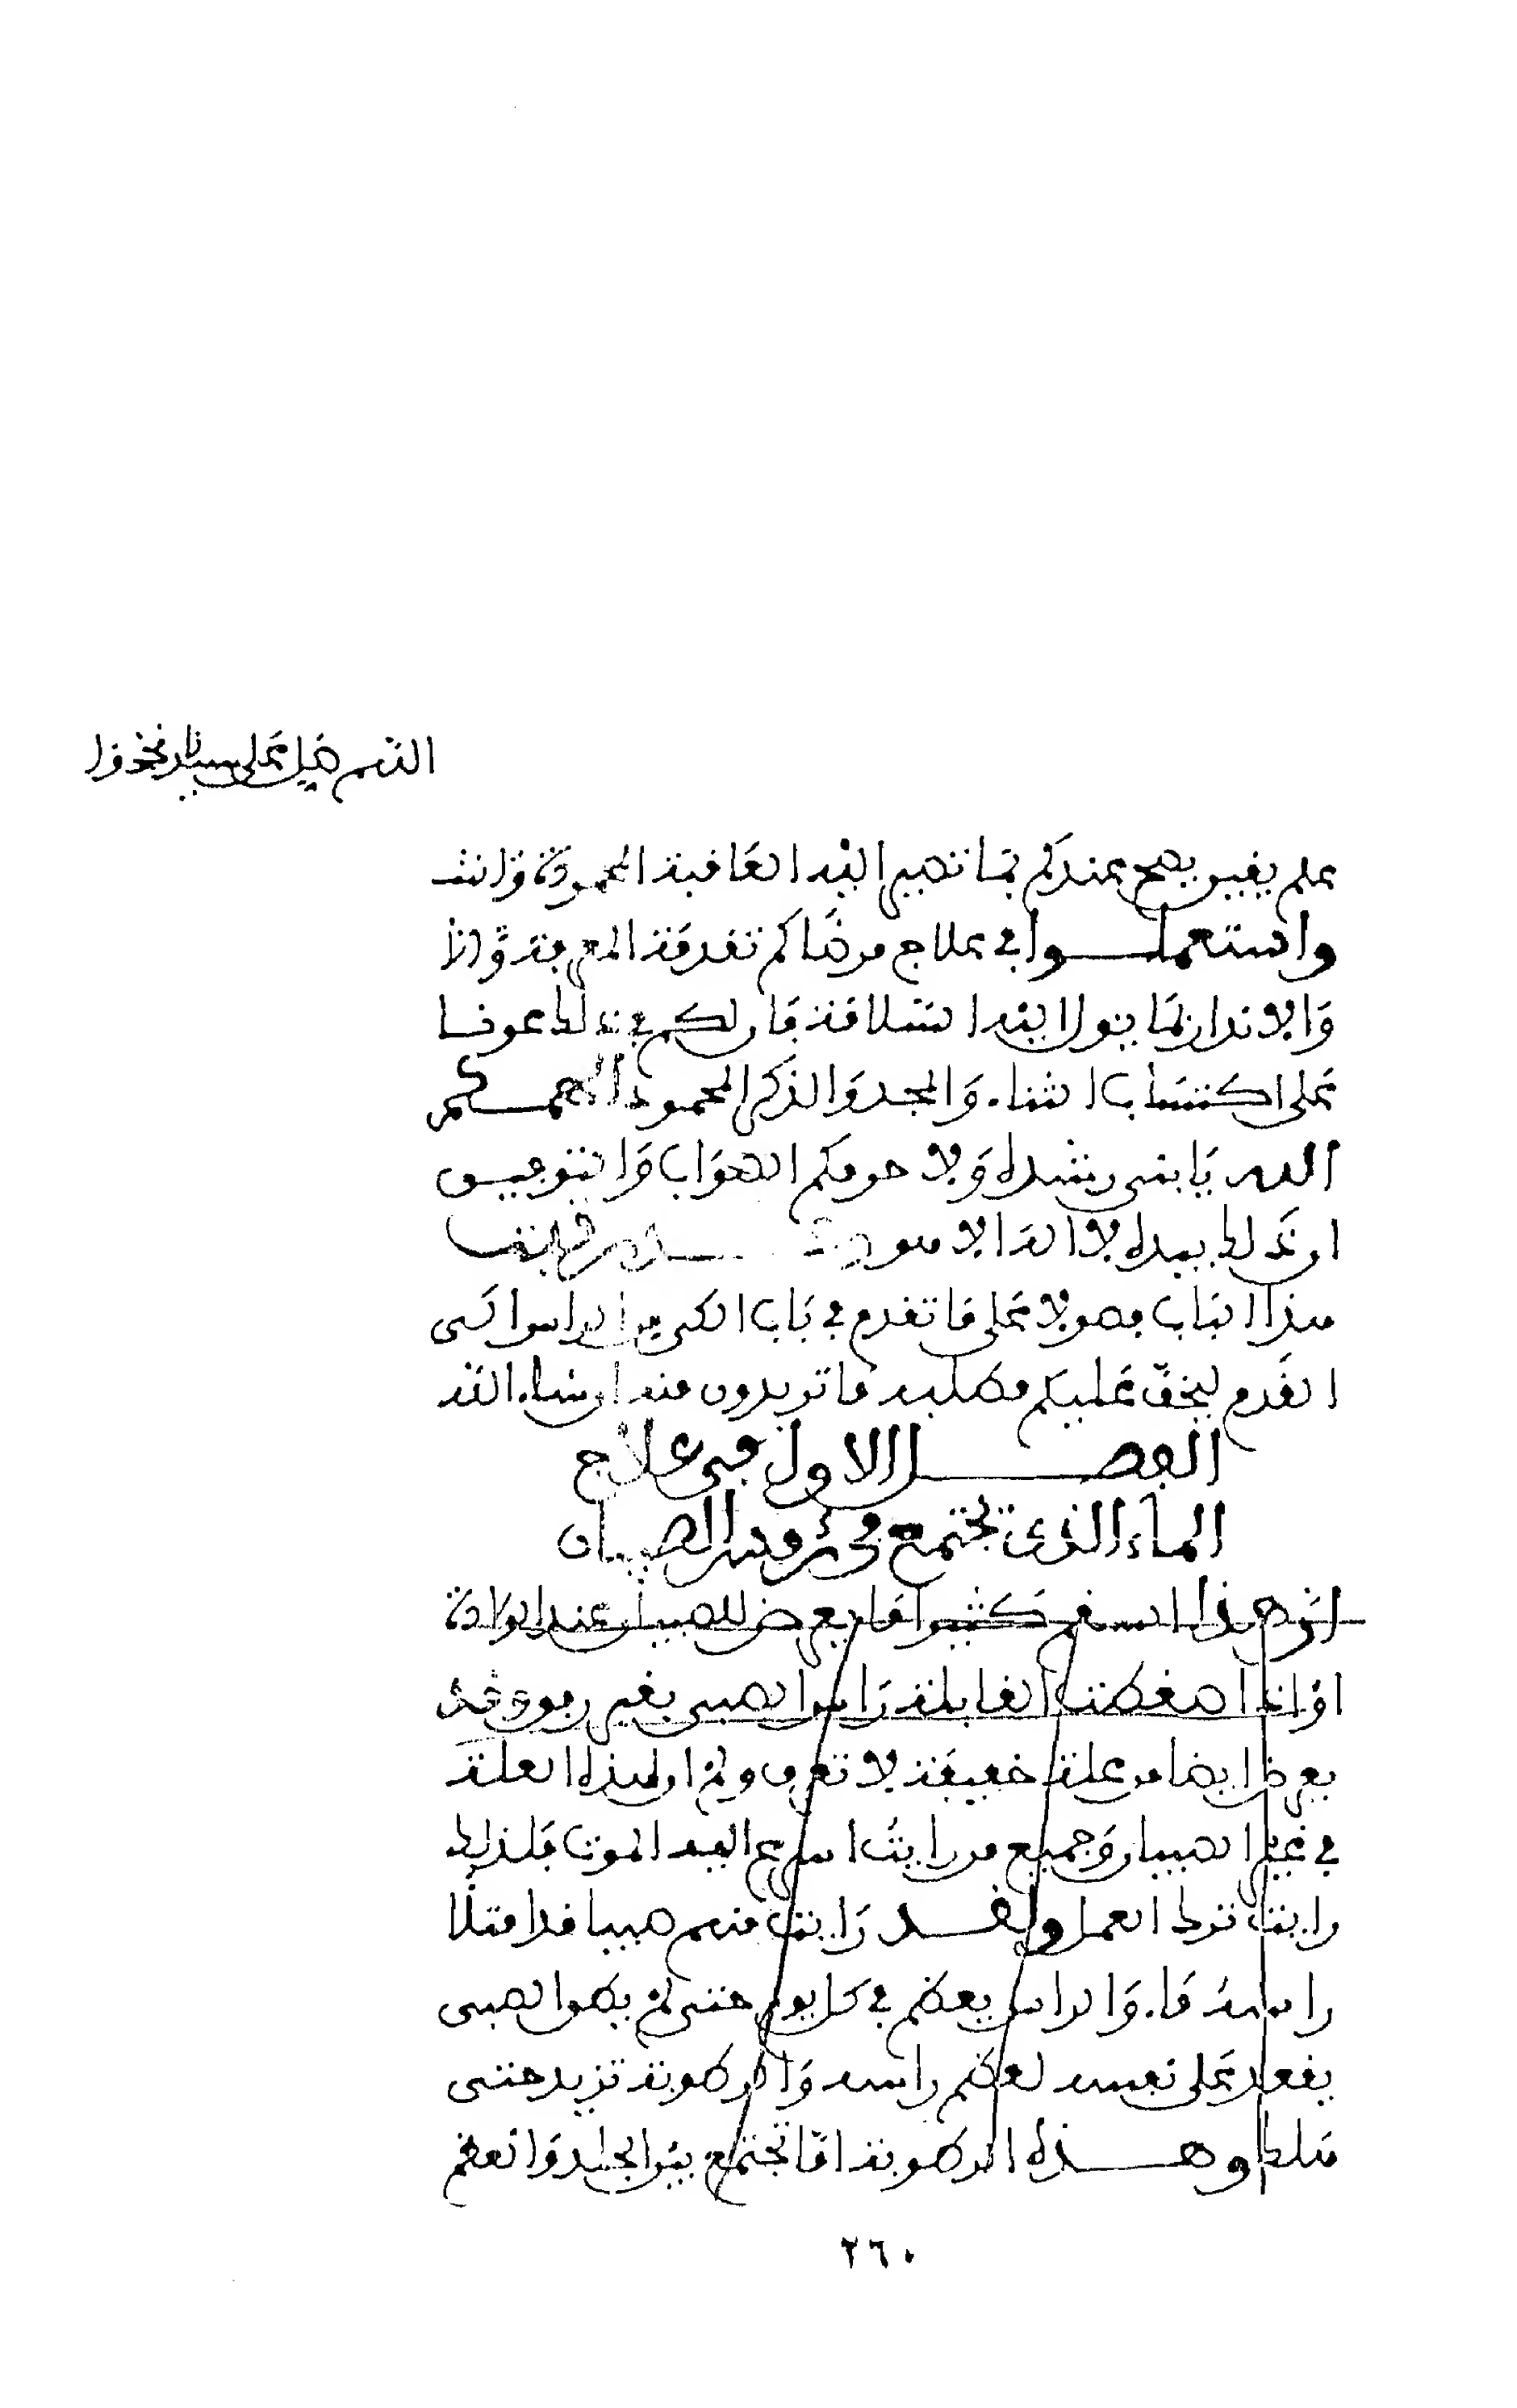 اللهم صل على سيدنا محمد وا
علم يقين يصح عندكم بما تصير اليه العاقبة المحمودة وانتفـ
واستعملوا في علاج مرضاكم تقدمة المعرفة
والانذار بما يول اليه السلامة فان لكم في ذلك عونا
على اكتساب الثناء والمجد والذكر المحمود الهمكم
الله يا بني رشده ولا حرمكم الصواب والتوفيق
ان ذلك بيده لا اله الا هو وقد رتبت
هذا الباب فصولا على ما تقدم في باب الكي من الراس الى
القدم ليخف عليكم مطلب ما تريدون منه ان شاء الله
الفصل الاول في علاج
الماء الذي تجتمع في رءوس الصبيان
ان هذا السقم كثيرا ما يعرض للصبيان عند الولادة
او اذا ضغطت القابلة راس الصبي بغير رفق وقد
يعرض ايضا من علة خفيفة لا تعرف ولم ار هذه العلة
في غير الصبيان وجميع من رايت اسرع اليه الموت فلذلك
رايت ترك العمل ولقد رايت منهم صبيا قد امتلا
راسه ماء والراس يعظم في كل يوم حتى لم يطق الصبي
يقعد على نفسه لعظم راسه والرطوبة تزيد حتى
هلك وهذه الرطوبة اما تجتمع بين الجلد والعظم
٢٦٠